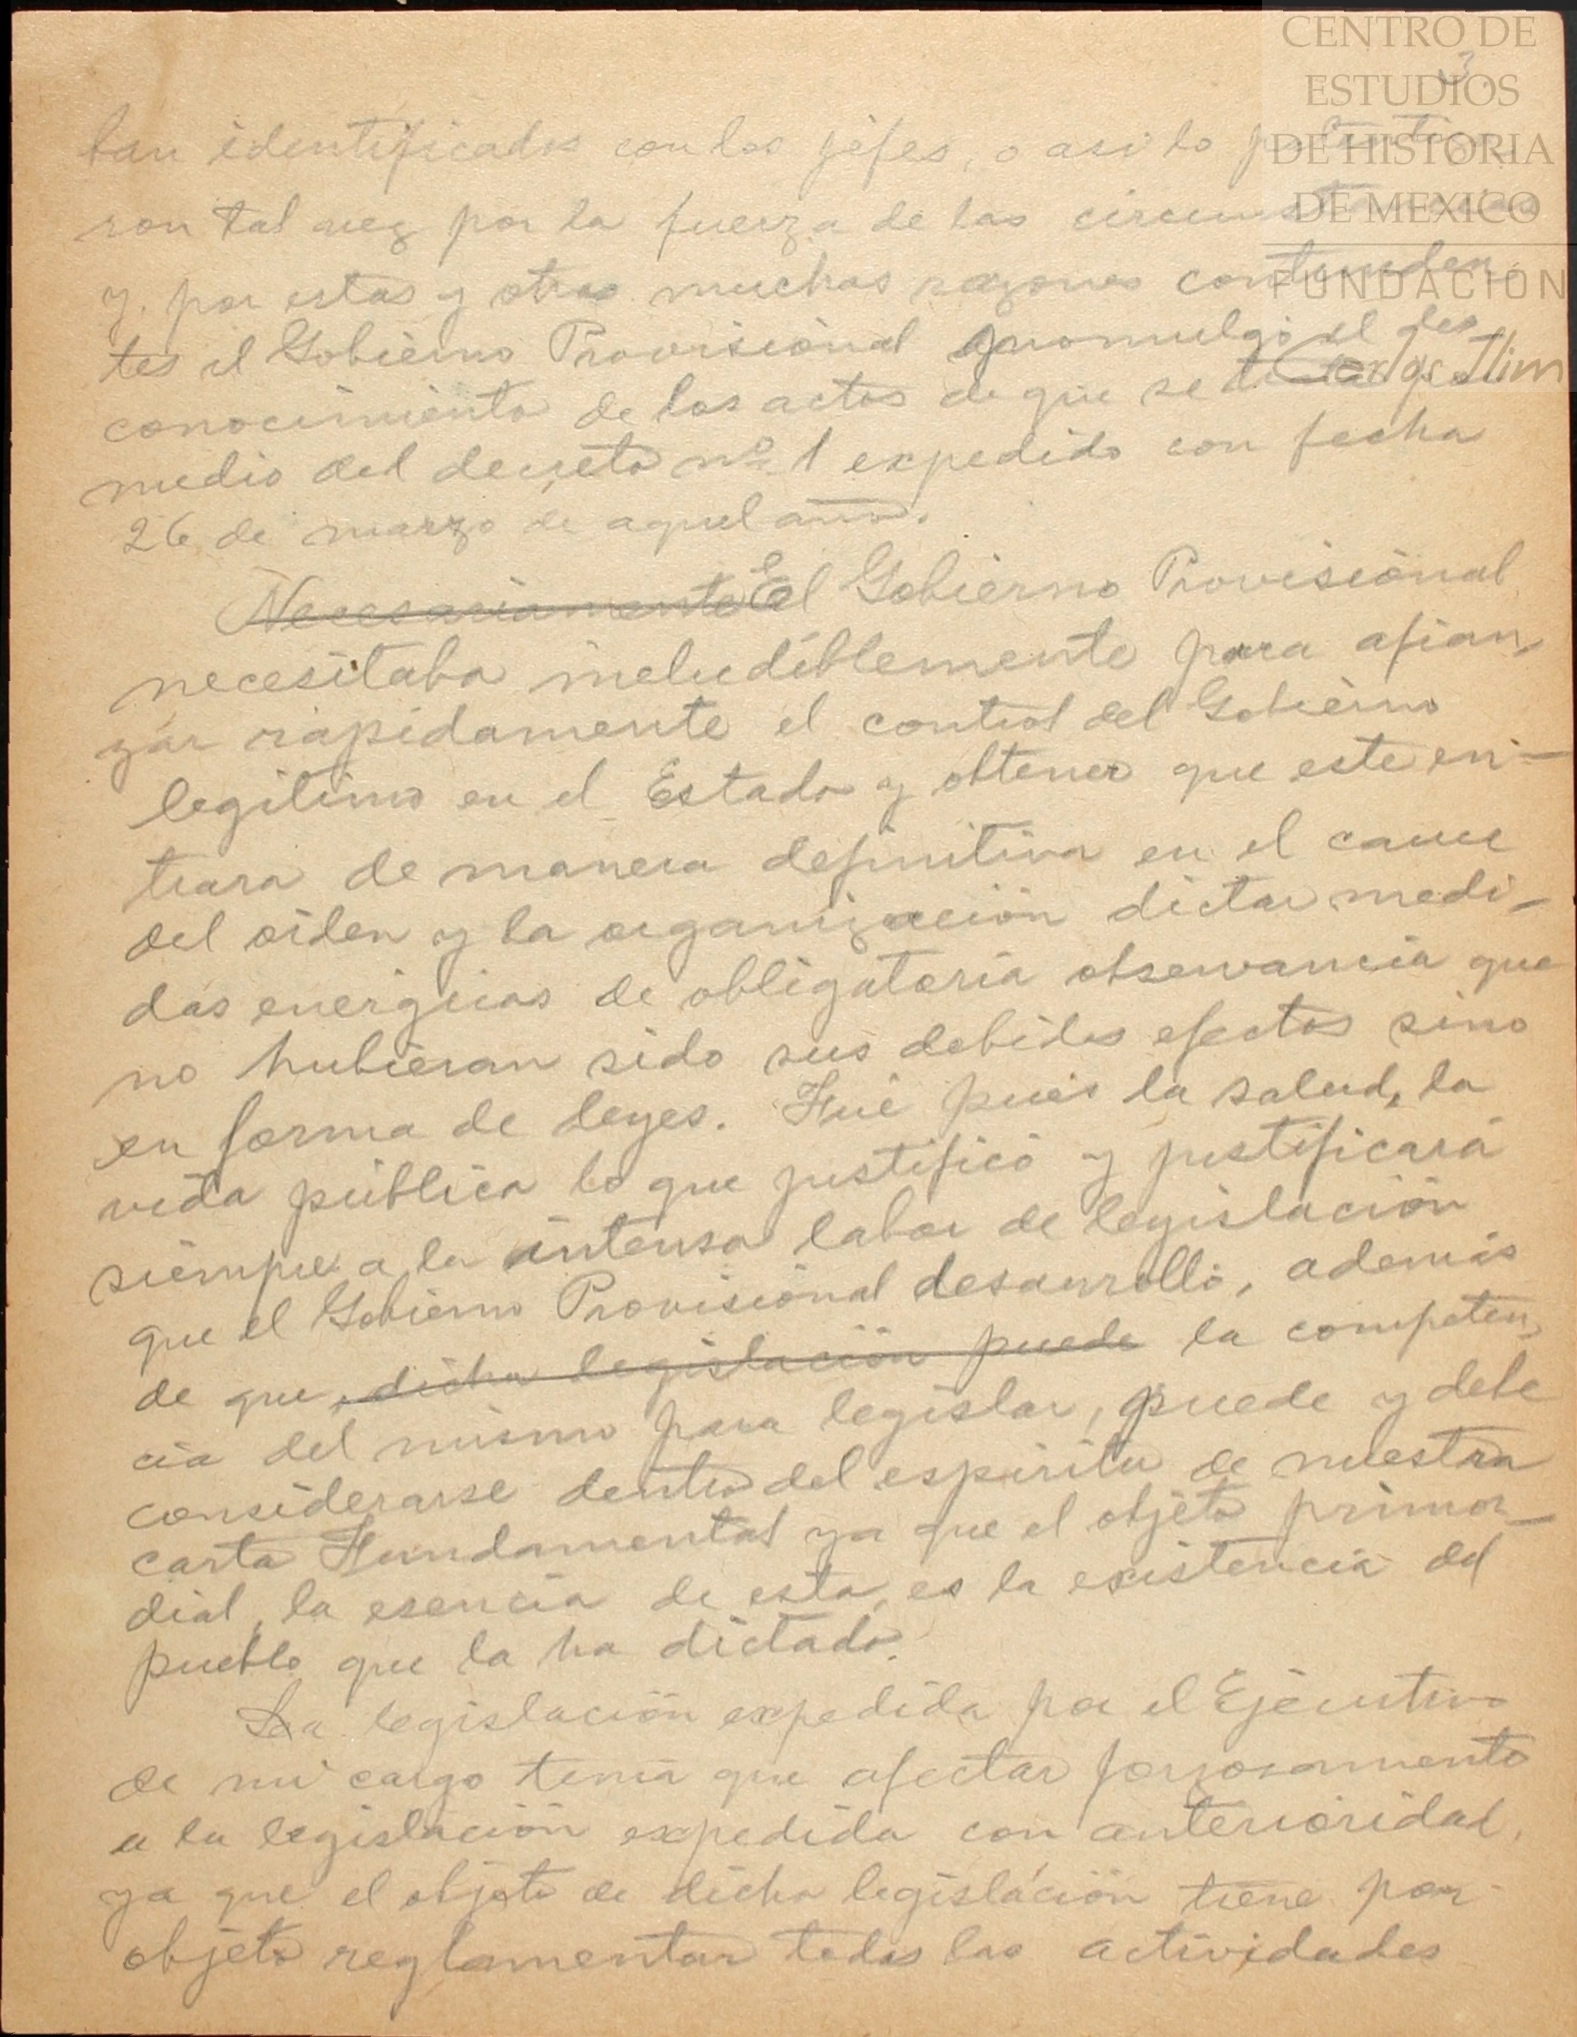 CENTRO DE
ESTUDIOS
DE HISTORIA
DE MEXICO
FUNDACIÓN
Carlos Slim
3.
ban identificados con los jefes, o asi lo
ron tal vez por la fuerza de las circunstancias
y, por estas y otras muchas razones contunden-
tes el Gobierno Provisional promulgó el des-
conocimiento de los actos de que se
medio del decreto nº 1 expedido con fecha
26 de marzo de aquel año.
Necesariamente El Gobierno Provisional
necesitaba ineludiblemente para afian-
zar rápidamente el control del Gobierno
legítimo en el Estado y obtener que este en-
trara de manera definitiva en el cauce
del orden y la organización dictar medi-
das energicas de obligatoria observancia que
no hubieran sido sus debidos efectos sino
en forma de leyes. Fué pués la salud, la
vida pública lo que justificó y justificará
siempre a la intensa labor de legislación
que el Gobierno Provisional desarrolló, además
de que dicha legislación puede la competen-
cia del mismo para legislar, puede y debe
considerarse dentro del espiritu de nuestra
carta Fundamental ya que el objeto primor-
dial, la esencia de esta, es la existencia del
pueblo que la ha dictado.
La legislación expedida por el Ejecutivo
de mi cargo tenía que afectar forzosamente
a la legislación expedida con anterioridad,
ya que el objeto de dicha legislación tiene por
objeto reglamentar todas las actividades